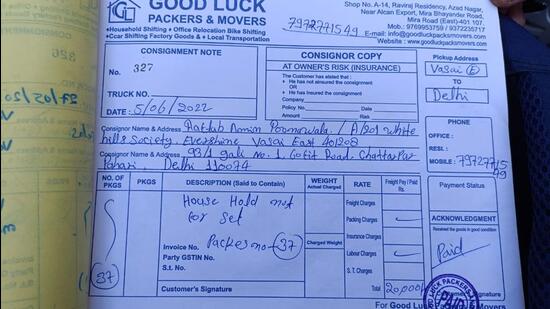 GOOD LUCK
GLC
PACKERS & MOVERS
•Household Shifting • Office Relocation Bike Shifting
•Ccar Shifting Factory Goods & • Local Transportation
Shop No. A-14, Raviraj Residency, Azad Nagar,
Near Alcan Export, Mira Bhayander Road,
Mira Road (East)-401 107.
Mob.: 9769953759 / 9372235717
E-mail: info@goodluckpacksmovers.com
Website : www.goodluckpacksmovers.com
7972771549
CONSIGNMENT NOTE
No. 327
TRUCK NO.
DATE : 5/06/2022
CONSIGNOR COPY
AT OWNER'S RISK (INSURANCE)
The Customer has stated that :
• He has not ainsured the consignment
OR
• He has Insured the consignment
Company
Policy No. Date
Amount Risk
PICKUP ADDRESS
Vasai (E)
TO
Delhi
Consignor Name & Address Aaftab Poonawala / A/801 White
hills Society, Evershine Vasai East 401208
Consignor Name & Address 93/1 gali No. 1, Road Chattarpur
Pahari, Delhi 110074
PHONE
OFFICE :
RESI. :
MOBILE : 7972771549
NO. OF PKGS
PKGS
DESCRIPTION (Said to Contain)
WEIGHT
Actual Charged
RATE
Freight Pay / Paid Rs.
Payment Status
37
House Hold not
for Set
Invoice No. Packes no - 37
Party GSTIN No.
S.I. No.
Customer's Signature
Charged Weight
Freight Charges
Packing Charges
Insurance Charges
Labour Charges
S. T. Charges
Total 20,000/-
ACKNOWLEDGMENT
Received the goods in good condition
Paid
For Good Luck Packers & Movers